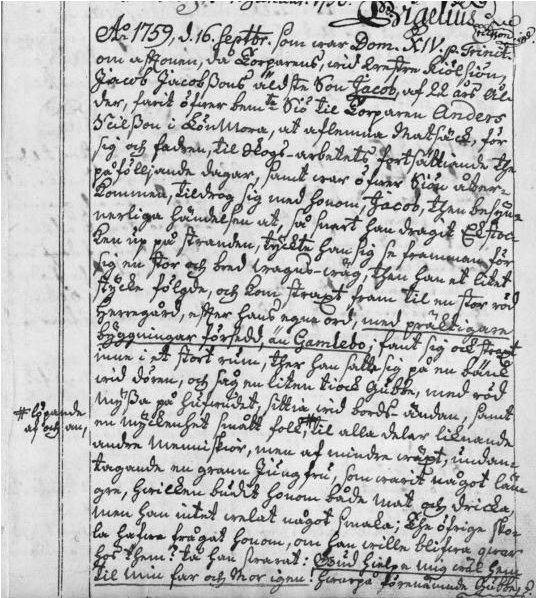 A:o 1759, d. 16. Septbr. som war Dom. XIV. p. Trinit.
om aftonen, då Torparens, wid Trestre Kiölsiön,
Jacob Jacobssons äldste Son Jacob, af 22 års ål-
der, farit öfwer bem:te Siö til Torparen Anders
Nilsson i LönMora, at aflemna Matsäck, för
sig och fadren, til skogs-arbetets fortsättiande the
påföljande dagar, samt war öfwer Siön åter-
kommen, tildrog sig med honom, Jacob, then besyn-
nerliga händelsen at, så snart han dragit Ekstoc-
ken up på stranden, tyckte han sig se framman för
sig en stor och bred wagns-wäg, then han et litet
stycke följde, och kom straxt fram til en stor röd
Herregård, efter hans egne ord, med präktigare
byggningar försedd, än Gamlebo; fant sig ock straxt
inne i et stort rum, ther han satte sig på en bänk
wid dören, och såg en liten tiock Gubbe, med röd
Myssa på hufwudet, sittia wid bords-ändan, samt
en myckenhet smått folk, # til alla delar liknande
# löpande
af och an,
andre Menniskior, men af mindre wäxt, undan-
tagande en grann Jungfru, som warit något län-
gre, hwilken budit honom både mat och dricka,
men han intet welat något smaka; The öfrige sko-
la hafwa frågat honom, om han wille blifwa qwar
hos them? tå han swarat: Gud hielpe mig wäl hem
til min far och Mor igen! hwarpå förenämnde Gubbe